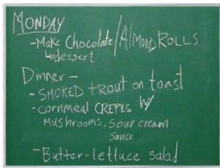 MONDAY
-Make Chocolate/Almond Rolls
dessert
Dinner-
-SMOKED TROUT on toast
-cornmeal CREPES W/
Mushrooms, Sour cream
Sauce
-Butter-lettuce salad